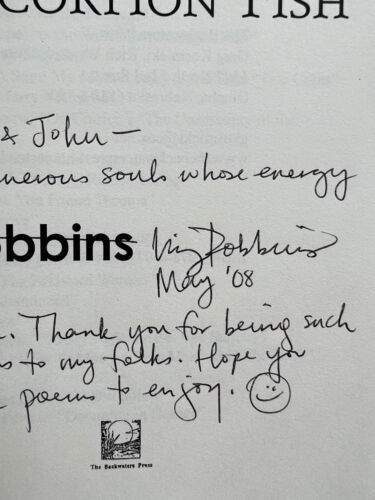 CORPION FISH
& John —
nerous souls whose energy
obbins Liz Robbins
May '08
. Thank you for being such
s to my folks. Hope you
poems to enjoy. ☺
The Backwaters Press